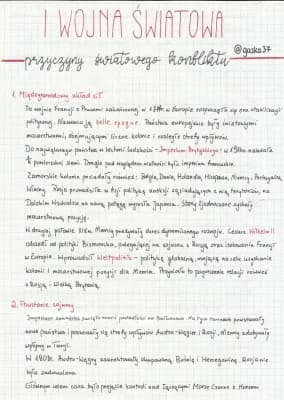 I WOJNA ŚWIATOWA
przyczyny światowego konfliktu
@gaska37
1. Międzynarodowy układ sił
Po wojnie Francji z Prusami zakończonej w 1871r. w Europie rozpoczęła się era stabilizacji
politycznej. Nazwano ją belle époque. Państwa europejskie były światowymi
mocarstwami, obejmującymi liczne kolonie i rozległe strefy wpływów.
Do najważniejszego państwa w historii ludzkości - Imperium Brytyjskiego - w 1914r. należała
¼ powierzchni ziemi. Drugie pod względem wielkości było imperium francuskie.
Zamorskie kolonie posiadały również: Belgia, Dania, Holandia, Hiszpania, Niemcy, Portugalia,
Włochy. Rosja prowadziła w Azji politykę aneksji sąsiadujących z nią terytoriów, na
Dalekim Wschodzie na nową potęgę wyrosła Japonia. Stany Zjednoczone zyskały
mocarstwową pozycję.
W drugiej połowie XIX w. Niemcy przeżywały okres dynamicznego rozwoju. Cesarz Wilhelm II
odszedł od polityki Bismarcka, polegającej na sojuszu z Rosją oraz izolowaniu Francji
w Europie. Wprowadził Weltpolitik - politykę globalną, mającą na celu uzyskanie
kolonii i mocarstwowej pozycji dla Niemiec. Przyniosła to pogorszenie relacji również
z Rosją i Wielką Brytanią.
2. Powstanie sojuszy
nowe państwa i poszerzały się strefy wpływów Austro-Węgier i Rosji, Niemcy zdobywały
wpływy w Turcji.
W 1908r. Austro-Węgry zaanektowały okupowaną Bośnię i Hercegowinę. Rosja nie
była zadowolona.
Głównym celem cara było przejęcie kontroli nad łączącymi Morze Czarne z Morzem